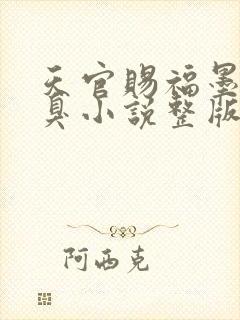 天官賜福墨
真小說整版
阿西克